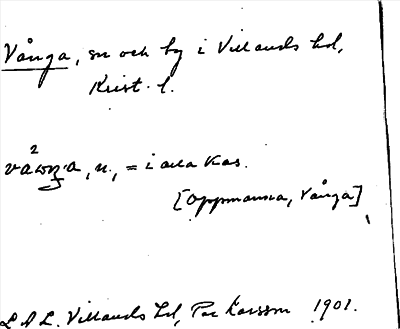 Vånga, sn och by i Villands hd,
Krist. l.
n., = i alla kas.
[Oppmanna, Vånga]
L A L. Villands hd, Per Larsson 1901.